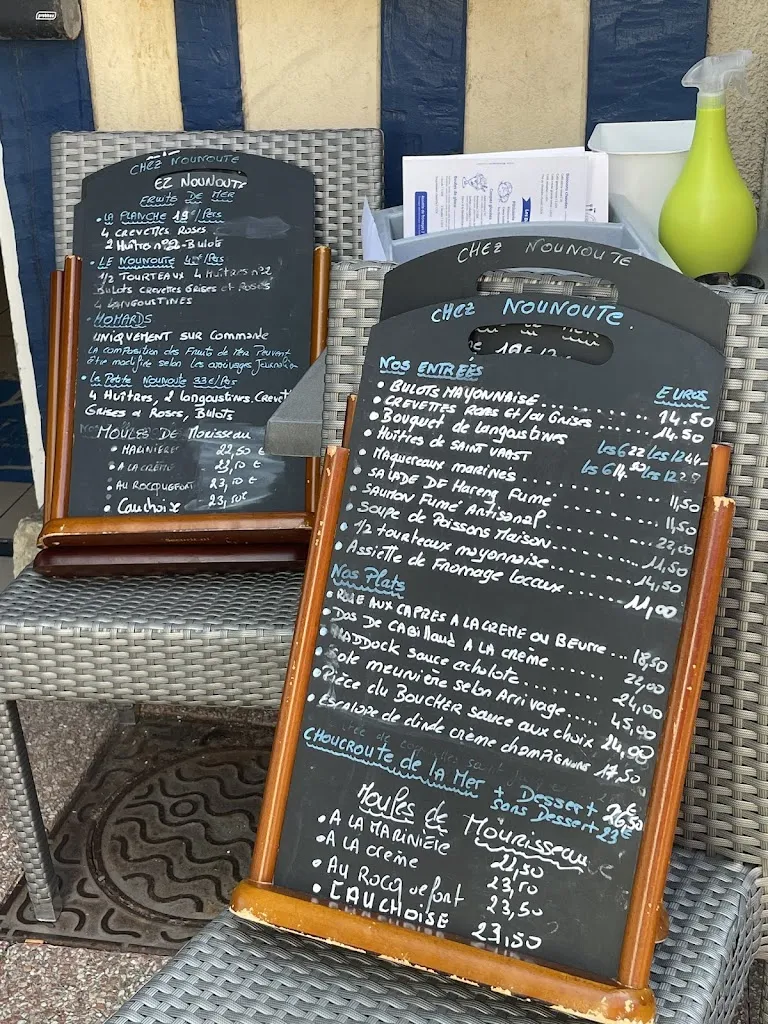 CHEZ NOUNOUTE
EZ NOUNOUTE
FRUITS DE MER
• LA PLANCHE 19€/Pers
4 CREVETTES ROSES
2 Huîtres n°2 - Bulots
• LE NOUNOUTE /Pers
1/2 TOURTEAUX 4 HUÎTRES n°2
BULOTS CREVETTES GRISES et ROSES
4 LANGOUSTINES
• HOMARDS
UNIQUEMENT SUR Commande
LA COMPOSITION des Fruits de Mer Peuvent
être modifié selon les
• Le Petite Nounoute 33€/Pers
4 Huîtres, 2 langoustines, Crevet
Grises & Roses, Bulots
MOULES DE Morisseau
• MARINIÈRE 22,50 €
• A LA CRÈME 23,50 €
• AU ROCQUEFORT 23,50 €
• Cauchoise 23,50€
CHEZ NOUNOUTE
CHEZ NOUNOUTE.
Nos ENTRÉES
EUROS
• BULOTS MAYONNAISE .......... 14.50
• CREVETTES ROSES ET/OU GRISES ..... 14.50
• Bouquet de langoustines les 6 22 les 12 44-
• Huîtres de SAINT VAAST les 6 14.50 les 12 28
• Maquereaux marinés .......... 11,50
• SALADE DE Hareng Fumé .......... 11,50
• SAUMON Fumé Artisanal .......... 22,00
• Soupe de Poissons Maison .......... 11,50
• 1/2 tourteaux mayonnaise .......... 14,50
• Assiette de Fromage locaux ........ 11,00
Nos Plats
• RAIE AUX CAPRES A LA CREME OU BEURRE ... 18,50
• Dos de CABILLAUD A LA crème ...... 22,00
• HADDOCK sauce echalote .......... 24,00
• Sole meunière selon Arrivage ..... 45,00
• Pièce du BOUCHER sauce aux choix 24,00
• Escalope de dinde crème champignons 17,50
CHOUCROUTE de la Mer + Dessert 26,50
sans Dessert 23€
Moules de Mourisseau
• A LA MARINIÈRE 22,50
• A LA crème 23,50
• AU ROCQUEfort 23,50
• CAUCHOISE 23,50